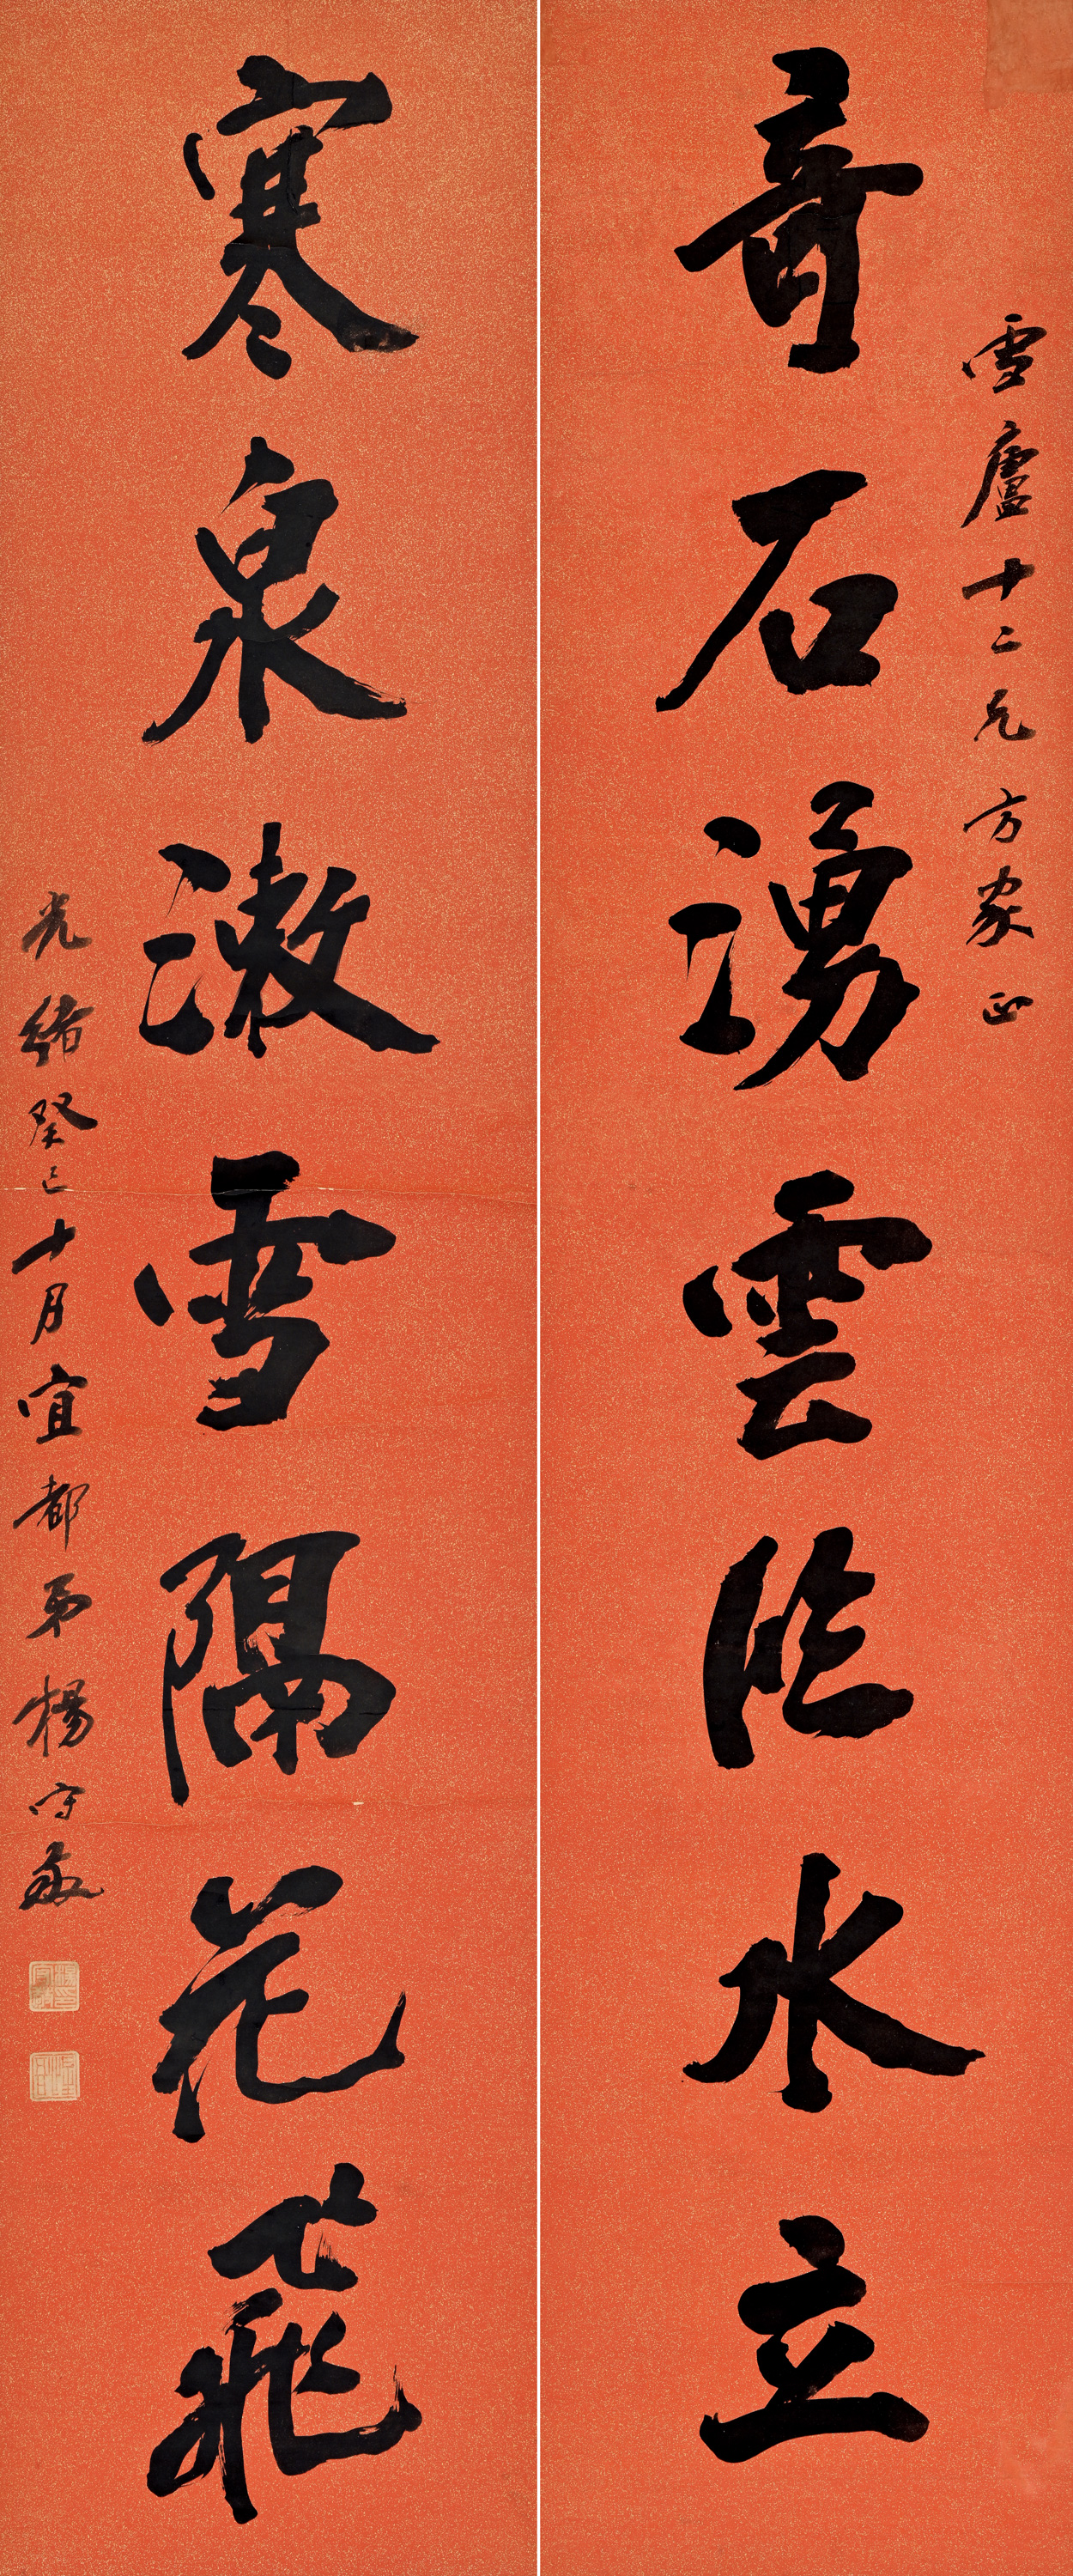 雪廬十二兄方家正
奇石湧雲臨水立
寒泉漱雪隔花飛
光緒癸巳十月宜都弟楊守敬